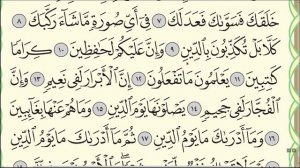 خَلَقَكَ فَسَوَّىٰكَ فَعَدَلَكَ ٧ فِىٓ أَىِّ صُورَةٍ مَّا شَآءَ رَكَّبَكَ ٨
كَلَّا بَلْ تُكَذِّبُونَ بِٱلدِّينِ ٩ وَإِنَّ عَلَيْكُمْ لَحَٰفِظِينَ ١٠ كِرَامًا
كَٰتِبِينَ ١١ يَعْلَمُونَ مَا تَفْعَلُونَ ١٢ إِنَّ ٱلْأَبْرَارَ لَفِى نَعِيمٍ ١٣ وَإِنَّ
ٱلْفُجَّارَ لَفِى جَحِيمٍ ١٤ يَصْلَوْنَهَا يَوْمَ ٱلدِّينِ ١٥ وَمَا هُمْ عَنْهَا بِغَآئِبِينَ
١٦ وَمَآ أَدْرَىٰكَ مَا يَوْمُ ٱلدِّينِ ١٧ ثُمَّ مَآ أَدْرَىٰكَ مَا يَوْمُ